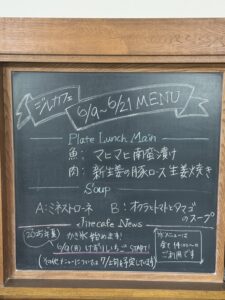 ジルカフェ
6/9~6/21 MENU
Plate Lunch Main
魚: マヒマヒ南蛮漬け
肉: 新生姜の豚ロース生姜焼き
Soup
A:ミネストローネ B:オクラとトマトとタマゴのスープ
Jirucafe News
2025年夏
かき氷始めます!
6/9(月) けずりいちごSTART!
(その他メニューについては7/2頃を予定しています)